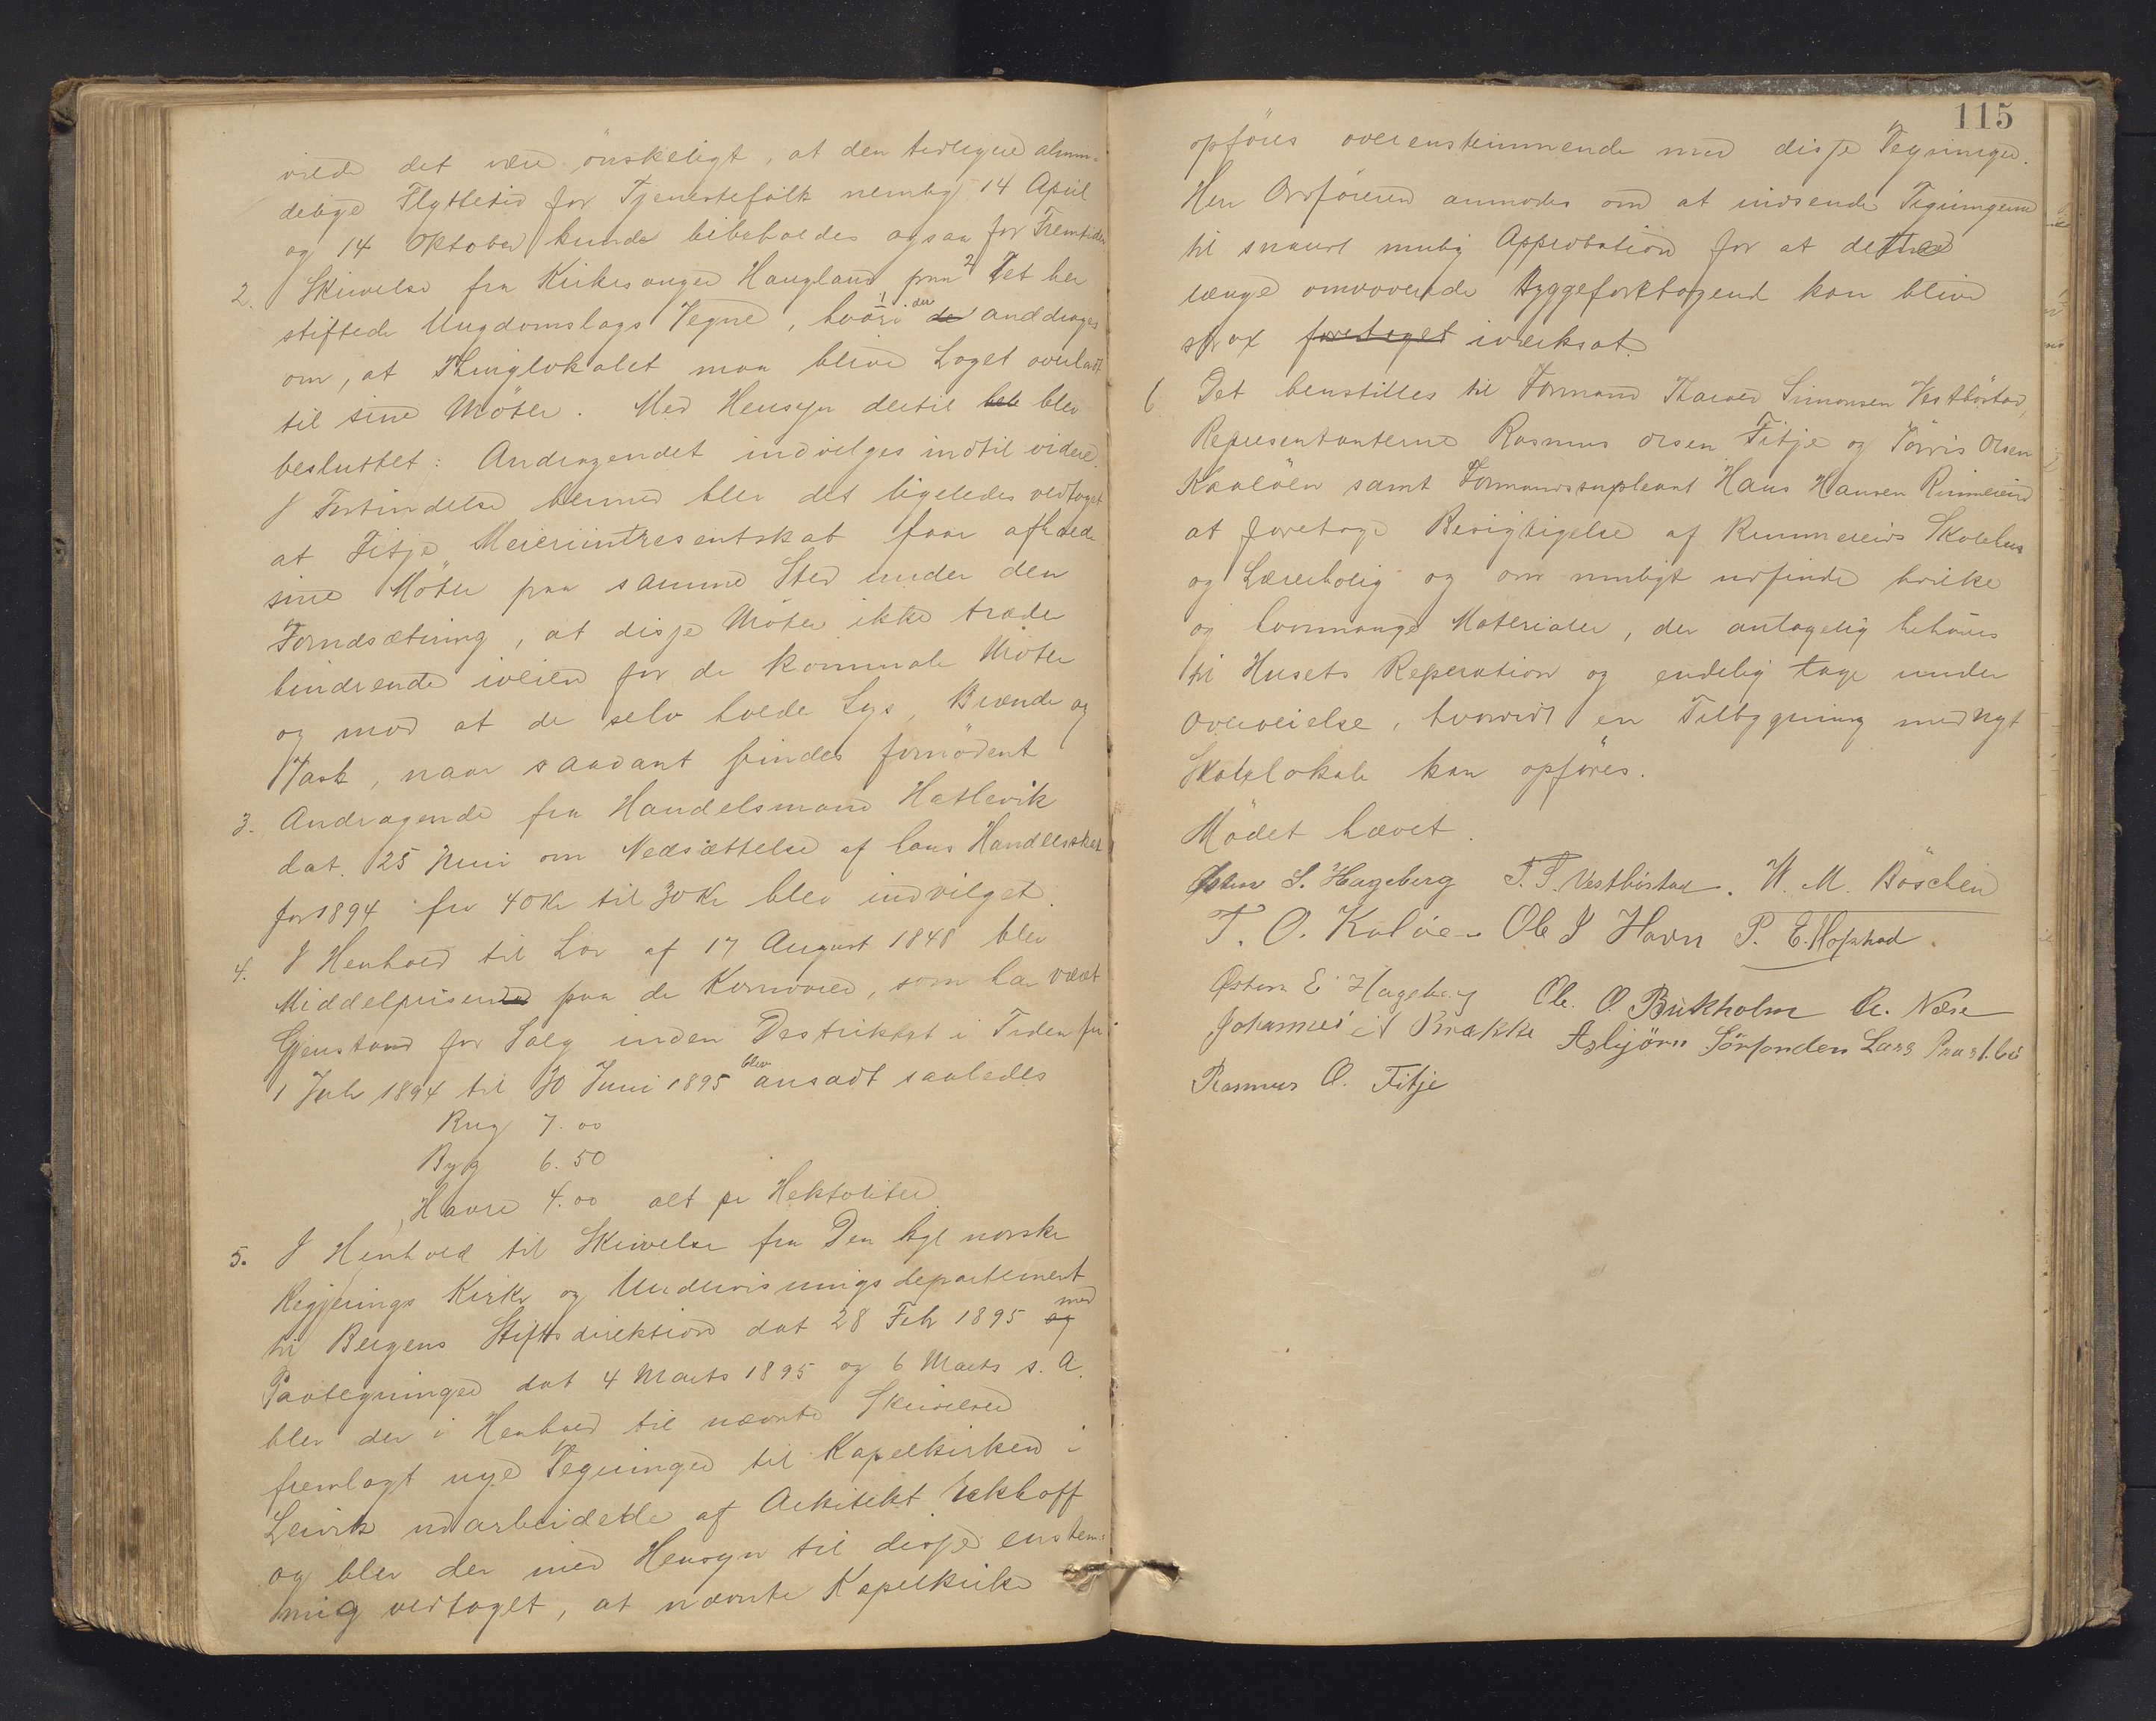 vilde det være önskeligt, at den tidligere almin-
delige Flyttetid for Tjenestefolk nemlig 14 April
og 14 Oktober kunde bibeholdes ogsaa for Fremtiden
2. Skrivelse fra Kirkesanger Haugland paa det her
stiftede Ungdomslags Vegne, hvori der anddrages
om, at Thinglokalet maa blive Laget overladt
til sine Möter. Med Hensyn dertil blev
besluttet: Andragendet indvilges indtil videre.
I Forbindelse hermed blev det ligeledes vedtaget
at Fitje Meieriintresentskab faar afholde
sine Möter paa samme Sted under den
Forudsætning, at disse Möter ikke træder
hindrende iveien for de kommunale Möter
og mod at de selv holde Lys, Brænde og
Vask, naar saadant findes fornödent
3. Andragende fra Handelsmand Hatlevik
dat. 25 Mai om Nedsættelse af hans Handelsskat
for 1894 fra 40 Kr til 30 Kr blev indvilget.
4. I Henhold til Lov af 17 August 1848 blev
Middelprisen paa de Kornvarer, som har været
Gjenstand for Salg inden Destriktet i Tiden fra
1 Juli 1894 til 30 Juni 1895 blev ansadt saaledes
Rug 7.00
Byg 6.50
Havre 4.00 alt pr Hektoliter
5. I Henhold til Skrivelse fra Den kgl norske
Regjerings Kirke og Undervisningsdepartement
til Bergens Stiftsdirektion dat 28 Feb 1895 og med
Paategninger dat 4 Marts 1895 og 6 Marts s. A.
blev der i Henhold til nævnte Skrivelser
fremlagt nye Tegninger til Kapelkirken i
Leirvik udarbeidede af Arkitekt Eckhoff
og blev der med Hensyn til disse enstem-
mig vedtaget, at nævnte Kapelkirke
115
opföres overensstemmende med disse Tegninger.
Herr Ordföreren anmodes om at indsende Tegningerne
til snarest mulig Approbation for at dette
længe omvovende Byggeforetagende kan blive
strax foretaget iverksat.
6 Det henstilles til Formand Tharald Simonsen Vestböstad,
Representanterne Rasmus Olsen Fitje og Törris Olsen
Kalöen samt Formandssupleant Hans Hansen Rimmereid
at foretage Besigtigelse af Rimmereids Skolehus
og Lærerbolig og om muligt udfinde hvilke
og hvormange Materialer, der antagelig behöves
til Husets Reperation og endelig tage under
Overveielse, hvorvidt en Tilbygning med Nyt
Skolelokale kan opföres.
Mödet hævet.
Østen S. Hageberg T. S. Vestböstad. W. M. Böschen
T. O. Kalöen Ole J Havn P. E. Hopstad.
Østen E Hageberg Ole. O. Birkholm A. Næse
Johannes N Brakke Asbjörn Sörfonden Lars Prestbö
Rasmus O. Fitje